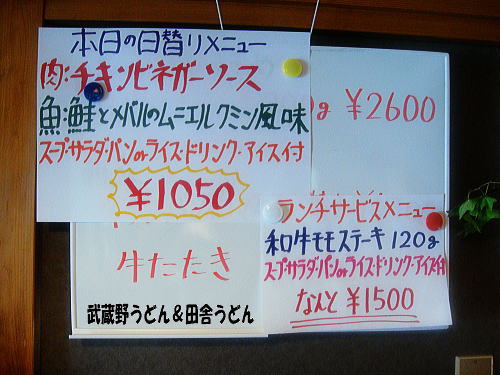 本日の日替りメニュー
肉:チキンビネガーソース
魚:鮭とメバルのムニエルクミン風味
スープ・サラダ・パンorライス・ドリンク・アイス付
¥1050
g ¥2600
牛たたき
ランチサービスメニュー
和牛モモステーキ 120g
スープ・サラダ・パンorライス・ドリンク・アイス付
なんと ¥1500
武蔵野うどん&田舎うどん